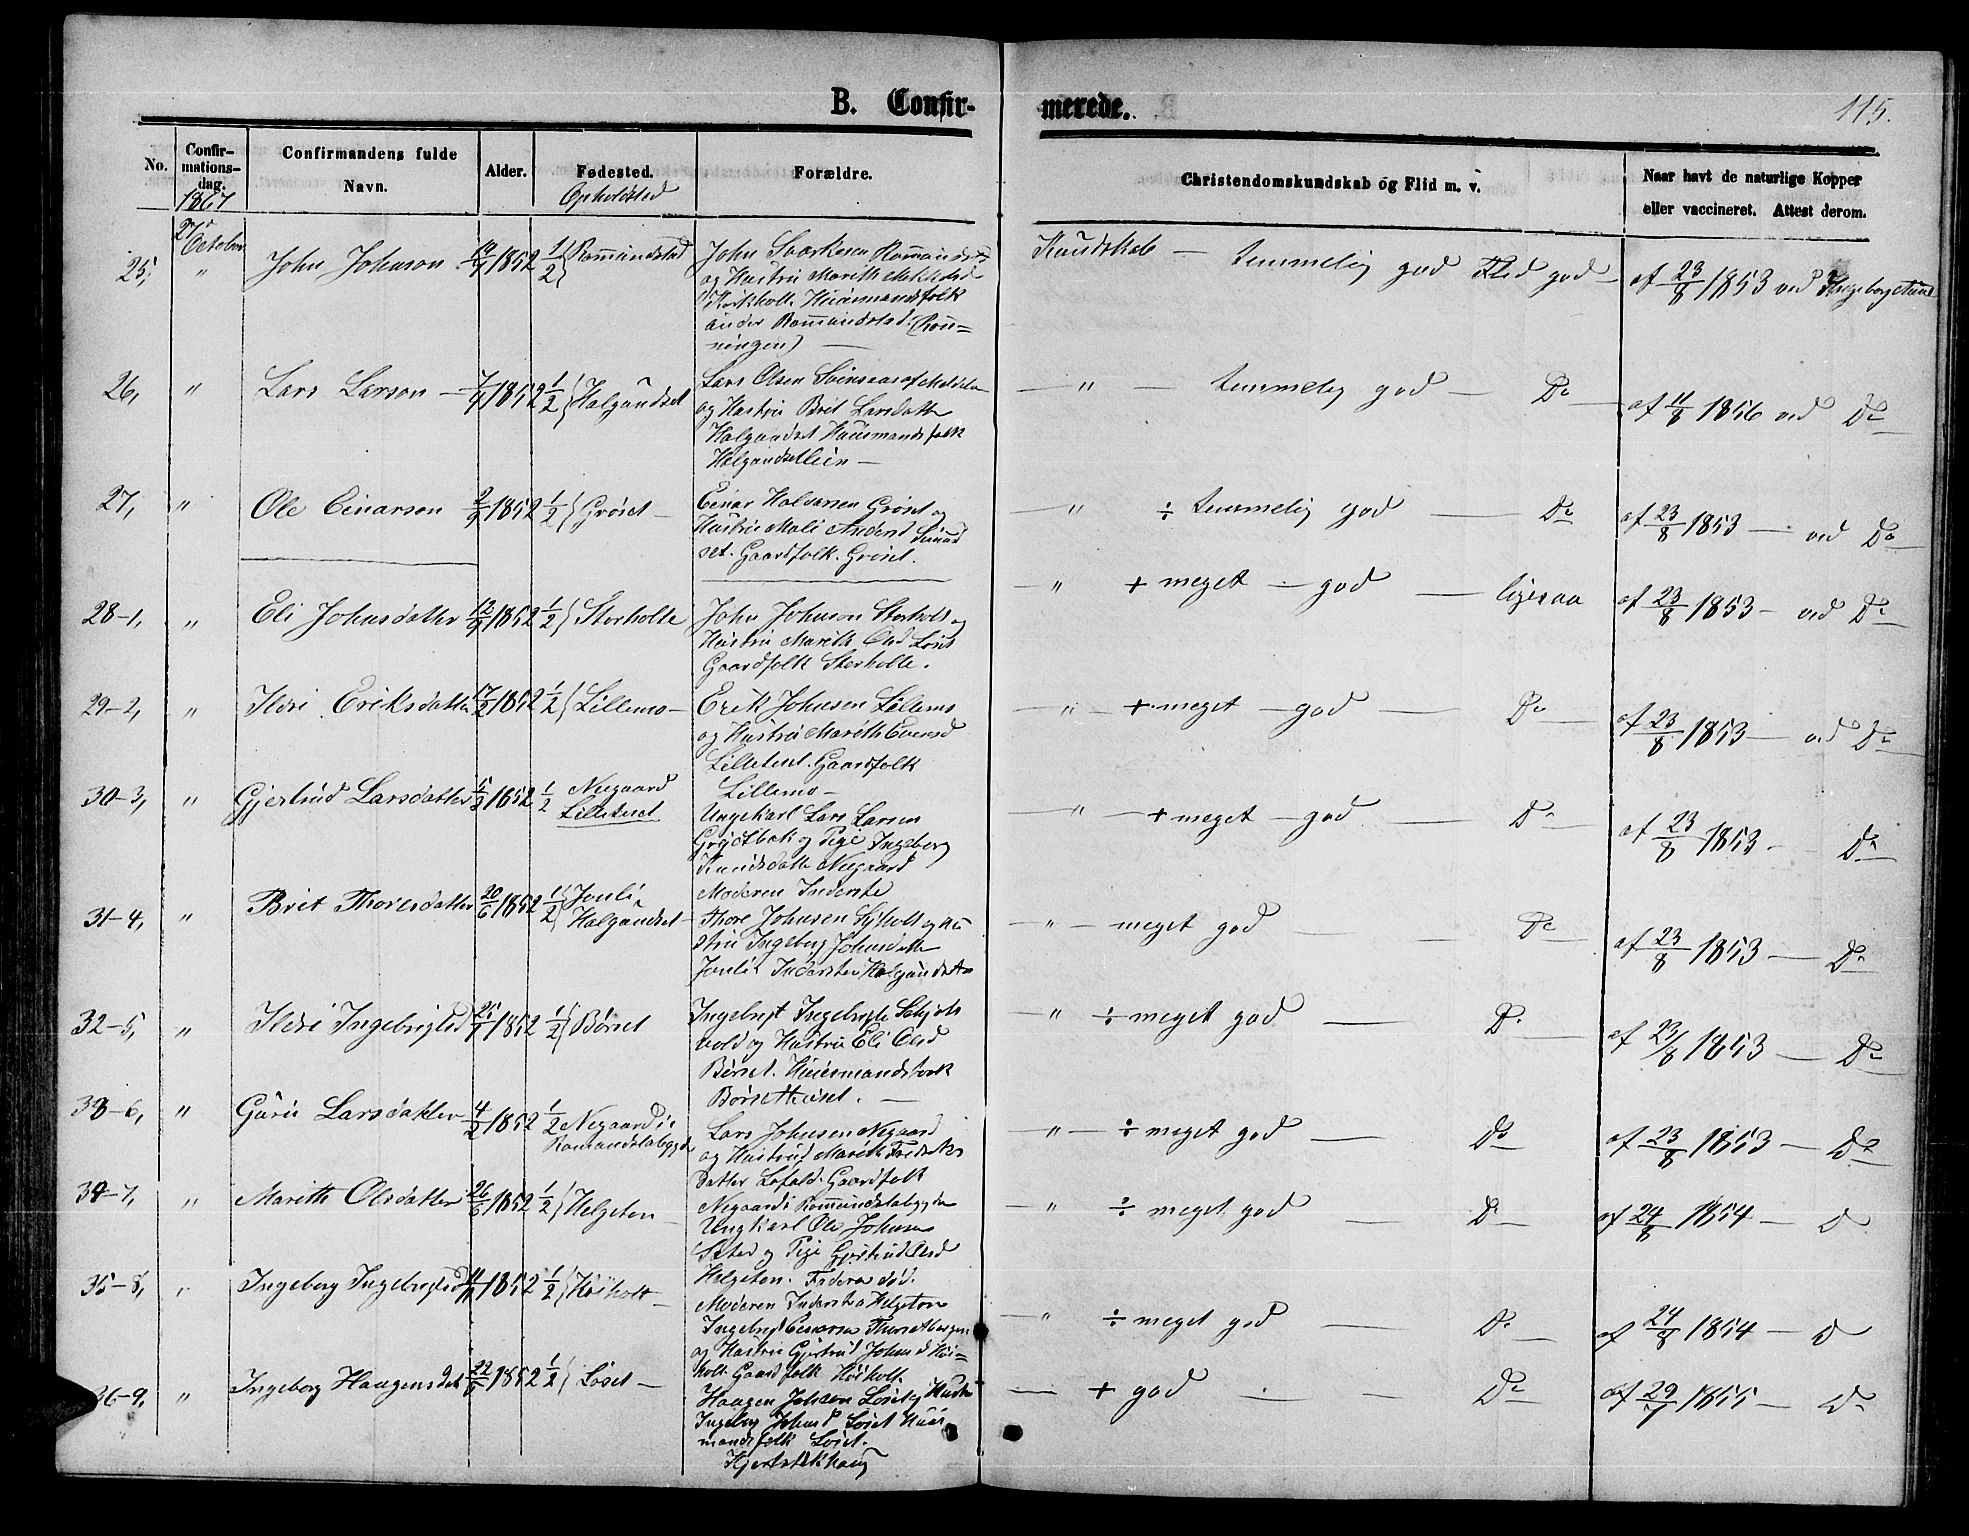 B. Confir-
merede.
115.
No.
Confir-
mations-
dag.
1867
Confirmandens fulde
Navn.
Alder.
Fødested.
Opholdsted
Forældre.
Christendomskundskab og Flid m. v.
Naar havt de naturlige Kopper
eller vaccineret. Attest derom.
October
25, " John Johnson 1852 1/2 Romundstad
og Hustru Marith
Huusmandsfolk
under Romundstad (Røn-
ningen)
Kundskab — temmelig god Flid god —
af 23/8 1853 ved Ingeborg
26, " Lars Larson — 7/9 1852 1/2 Halgundset
Lars Olsen
og Hustru Brit Larsdatter
Halgundset Huusmandsfolk
— " — temmelig god — Do
af 11/8 1856 ved Do
27, " Ole Einarson 2/9 1852 1/2 Grøset —
Einar Halvorsen Grøset og
Hustru Mali Andersd
set. Gaardfolk. Grøset.
— " ÷ temmelig god — Do
af 23/8 1853 — ved Do
28-1, " Eli Johnsdatter 12/9 1852 1/2 Storholte
John Johnson Storholt og
Hustru Marith Olsd Løset
Gaardfolk Storholte.
— " + meget — god — ligesaa
af 23/8 1853 — ved Do
29-2, " Ildri Eriksdatter 17/2 1852 1/2 Lillemo —
Erik Johnsen Lillemo
og Hustru Marith Eversd
Gaardfolk
Lillemo —
— " — + meget — god — Do
af 23/8 1853 — ved Do
30-3, " Gjertrud Larsdatter 1852 1/2 Neegaard
Ungekarl Lars Larsen
og Pige Ingeborg
Knudsdatter Neegaard
Moderen Inderste
— " — + meget — god — Do
af 23/8 1853 — Do
31-4, " Brit Thoresdatter 20/6 1852 1/2 Jonli
Halgundset —
Thore Johnsen og Hu
stru Ingeborg Johnsdatter
Jonli Inderster Halgundset
— " — meget god — Do
af 23/8 1853 — Do
32-5, " Ildri Ingebrigtsd 25/1 1852 1/2 Børset
vold og Hustru Eli Olsd
Børset. Huusmandsfolk
— " ÷ meget god — Do
af 23/8 1853 — Do
33-6, " Guru Larsdatter 4/2 1852 1/2 Negaard i
Romundstabygden
Lars Johnsen Negaard
og Hustru Marith Fredriks
datter Lofald. Gaardfolk
Negaard i Romundstabygden
— " — ÷ meget god — Do
af 23/8 1853 — Do
34-7, " Marith Olsdatter 26/6 1852 1/2 Helgeton —
Ungkarl Ole Johnsen
Sæter og Pige Gjertrud Olsd
Helgeton. Faderen død.
Moderen Inderste Helgeton
— " ÷ meget god — Do
af 24/8 1854 — D
35-8, " Ingeborg Ingebrigtsd 1852 1/2 Høiholt —
og Hustru Gjertrud Johnsd Høi-
holt Gaardfolk Høiholt.
— " ÷ meget god — Do
af 24/8 1854 — D
36-9, " Ingeborg Haagensdat 1852 1/2 Løset —
Haagen Johnsen Løset og Hustru
Ingeborg Johnsd Løset Huus
mandsfolk Løset.
— + god — Do
af 29/7 1855 — Do